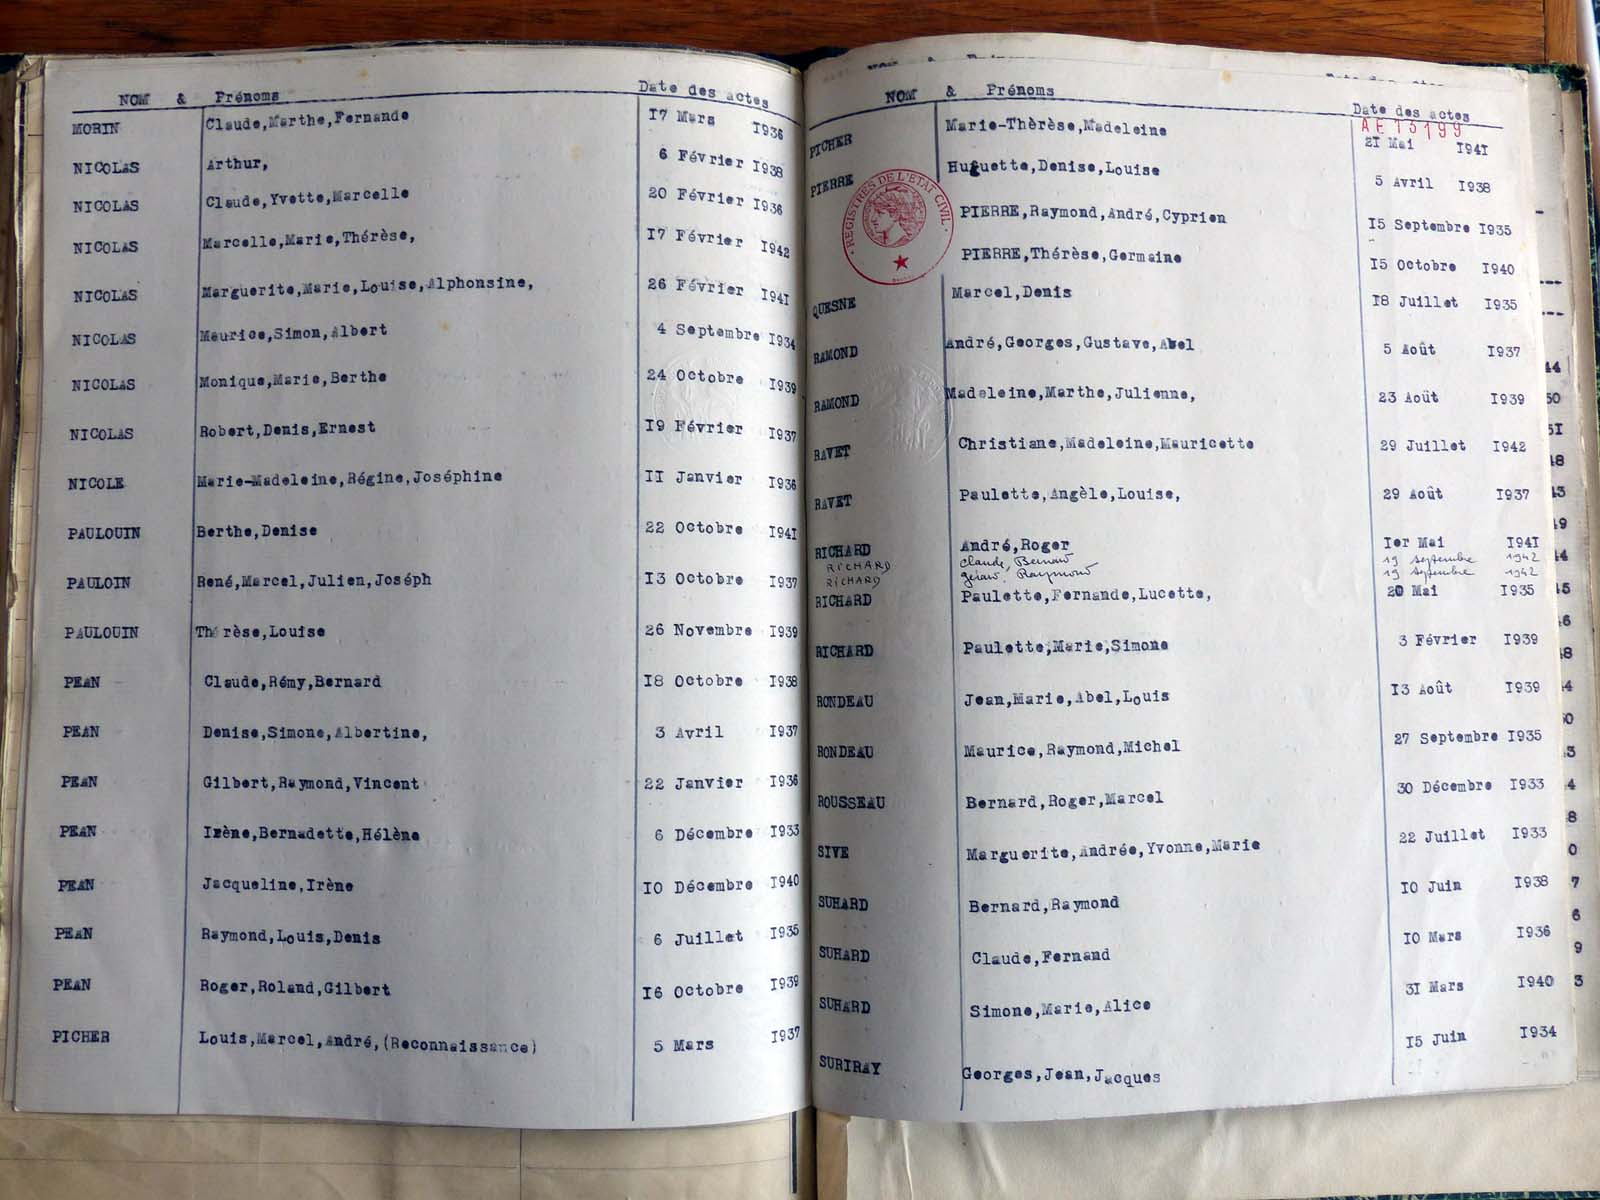 NOM & Prénoms Date des actes
MORIN Claude,Marthe,Fernande 17 Mars 1936
NICOLAS Arthur, 6 Février 1938
NICOLAS Claude,Yvette,Marcelle 20 Février 1936
NICOLAS Marcelle,Marie,Thérèse, 17 Février 1942
NICOLAS Marguerite,Marie,Louise,Alphonsine, 26 Février 1941
NICOLAS Maurice,Simon,Albert 4 Septembre 1934
NICOLAS Monique,Marie,Berthe 24 Octobre 1939
NICOLAS Robert,Denis,Ernest 19 Février 1937
NICOLE Marie-Madeleine,Régine,Joséphine 11 Janvier 1936
PAULOUIN Berthe,Denise 22 Octobre 1941
PAULOIN René,Marcel,Julien,Joséph 13 Octobre 1937
PAULOUIN Thérèse,Louise 26 Novembre 1939
PEAN Claude,Rémy,Bernard 18 Octobre 1938
PEAN Denise,Simone,Albertine, 3 Avril 1937
PEAN Gilbert,Raymond,Vincent 22 Janvier 1936
PEAN Irène,Bernadette,Hélène 6 Décembre 1933
PEAN Jacqueline,Irène 10 Décembre 1940
PEAN Raymond,Louis,Denis 6 Juillet 1935
PEAN Roger,Roland,Gilbert 16 Octobre 1939
PICHER Louis,Marcel,André,(Reconnaissance) 5 Mars 1937
NOM & Prénoms Date des actes
AE13199
PICHER Marie-Thèrèse,Madeleine 21 Mai 1941
PIERRE Huguette,Denise,Louise 5 Avril 1938
REGISTRES DE L'ETAT CIVIL
PIERRE,Raymond,André,Cyprien 15 Septembre 1935
PIERRE,Thérèse,Germaine 15 Octobre 1940
QUESNE Marcel,Denis 18 Juillet 1935
RAMOND André,Georges,Gustave,Abel 5 Août 1937
RAMOND Madeleine,Marthe,Julienne, 23 Août 1939
RAVET Christiane,Madeleine,Mauricette 29 Juillet 1942
RAVET Paulette,Angèle,Louise, 29 Août 1937
RICHARD André,Roger 1er Mai 1941
RICHARD Claude, Bernard 19 septembre 1942
RICHARD gérard, Raymond 19 septembre 1942
RICHARD Paulette,Fernande,Lucette, 20 Mai 1935
RICHARD Paulette,Marie,Simone 3 Février 1939
RONDEAU Jean,Marie,Abel,Louis 13 Août 1939
RONDEAU Maurice,Raymond,Michel 27 Septembre 1935
ROUSSEAU Bernard,Roger,Marcel 30 Décembre 1933
SIVE Marguerite,Andrée,Yvonne,Marie 22 Juillet 1933
SUHARD Bernard,Raymond 10 Juin 1938
SUHARD Claude,Fernand 10 Mars 1936
SUHARD Simone,Marie,Alice 31 Mars 1940
SURIRAY Georges,Jean,Jacques 15 Juin 1934